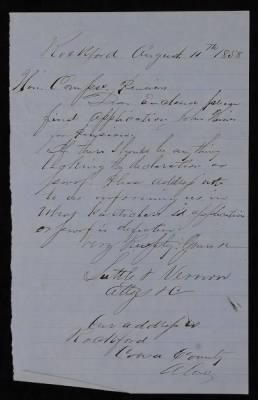 Rockford August 11th 1858
Hon. Com of Pensions
Dear Sir Enclosed please
find application John
for Pensions
If there should be any thing
lacking in declaration or
proof Please address us
in
What particular is application
or proof is defective
Very Respfly Yours &c
Suttle & Vernon
Attys &c
Our address is
Rockford
Coosa County
Ala